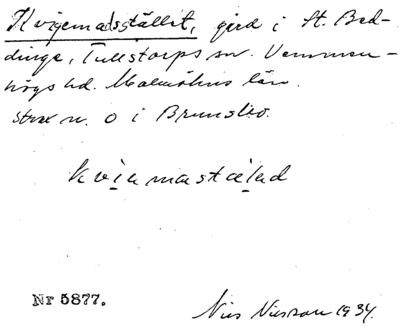 Kvigemadsstället, gård i St. Bed-
dinge, Tullstorps sn. Vemmen-
högs hd. Malmöhus län.
strax n. o i Brunslöv.
kvi̱amastæ̱lad
Nr 5877.
Nils Nilsson 1934.